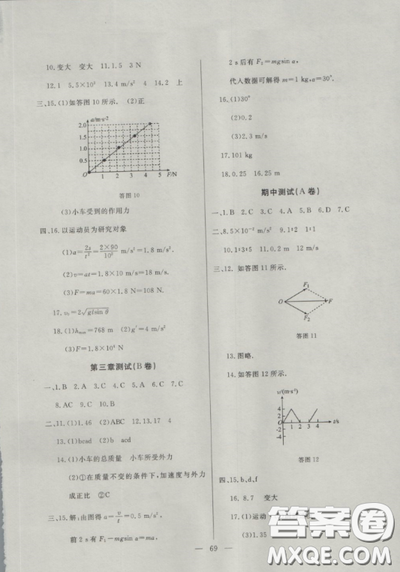 10.变大 变大 11.1.5 3 N
12.1 5.5×10⁴ 13.4 m/s² 4 14.2 上
三、15.(1)如答图 10 所示. (2)正
a/m·s⁻²
2.0
1.5
1.0
0.5
0 1 2 3 4 5 F/N
答图 10
(3)小车受到的作用力
四、16.以运动员为研究对象
(1)a=2s/t²=2×90/10² m/s²=1.8 m/s².
(2)v=at=1.8×10 m/s=18 m/s
(3)F=ma=60×1.8 N=108 N.
18.(1)hₘₐₓ=768 m (2)g′=4 m/s²
(3)F=1.8×10⁴ N
第三章测试(B卷)
8.AC 9.C 10.BD
二、11.(1)1.46 (2)ABC 12.13.17 4
13.(1)hcad (2)b acd
14.(1)小车的总质量 小车所受外力
(2)①在质量不变的条件下,加速度与外力
成正比 ②C
三、15.解:由图得a=v/t=0.5 m/s²,
前 2 s 有 F₁−mgsin a=ma,
2 s 后有 F₂=mgsin a,
代入数据可解得 m=1 kg,a=30°.
16.(1)30°
(2)0.3
(3)2.3 m/s
17.101 kg
18.0.25 16.25 m
期中测试(A 卷)
10.1∶3∶5 11.0.2 m 12 m/s
三、12.如答图 11 所示.
F₁
O F
F₂
答图 11
13.图略.
14.如答图 12 所示.
v/(m·s⁻¹)
4
2
0
1 2 3 4 t/s
-2
-4
答图 12
四、15.b,d,f
16.8.7 变大
答案圈
MXQE.COM
69